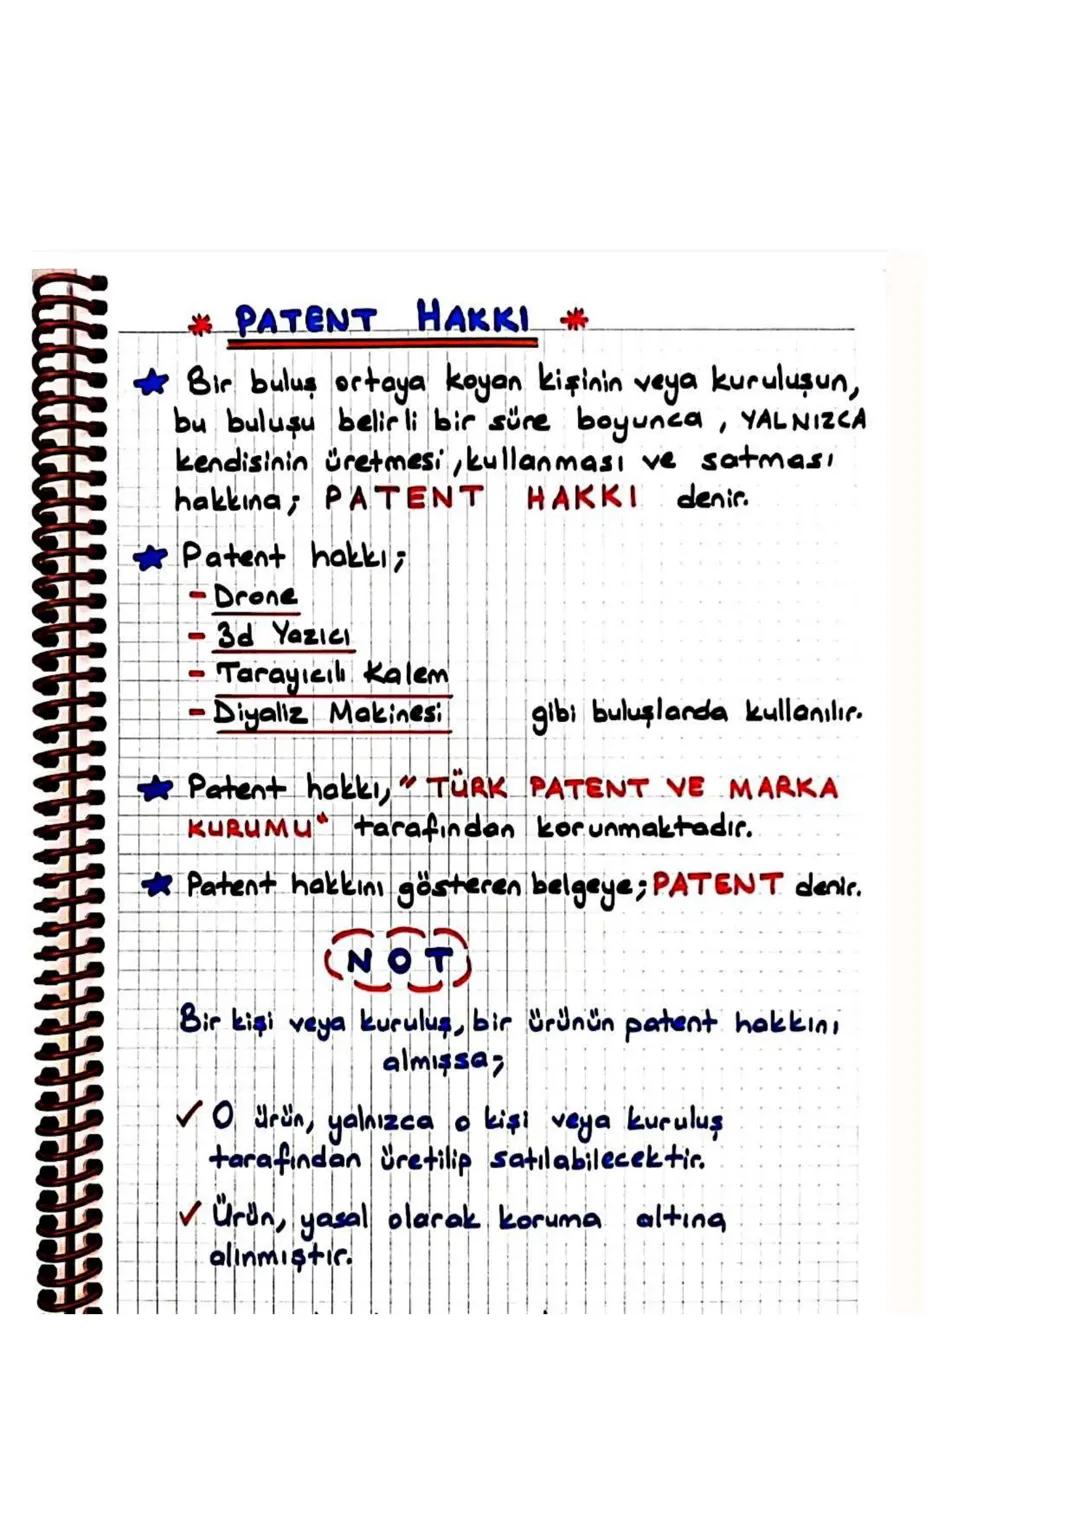 * PATENT HAKKI *
★ Bir buluş ortaya koyan kişinin veya kuruluşun,
bu buluşu belirli bir süre boyunca, YALNIZCA
kendisinin üretmesi, kullanması ve satması
hakkına; PATENT HAKKI denir.
★ Patent hakkı;
- Drone
- 3d Yazıcı
- Tarayıcılı Kalem
- Diyaliz Makinesi gibi buluşlarda kullanılır.
★ Patent hakkı, "TÜRK PATENT VE MARKA
KURUMU" tarafından korunmaktadır.
★ Patent hakkını gösteren belgeye; PATENT denir.
NOT
Bir kişi veya kuruluş, bir ürünün patent hakkını
almışsa;
✓ O ürün, yalnızca o kişi veya kuruluş
tarafından üretilip satılabilecektir.
✓ Ürün, yasal olarak koruma altına
alınmıştır.